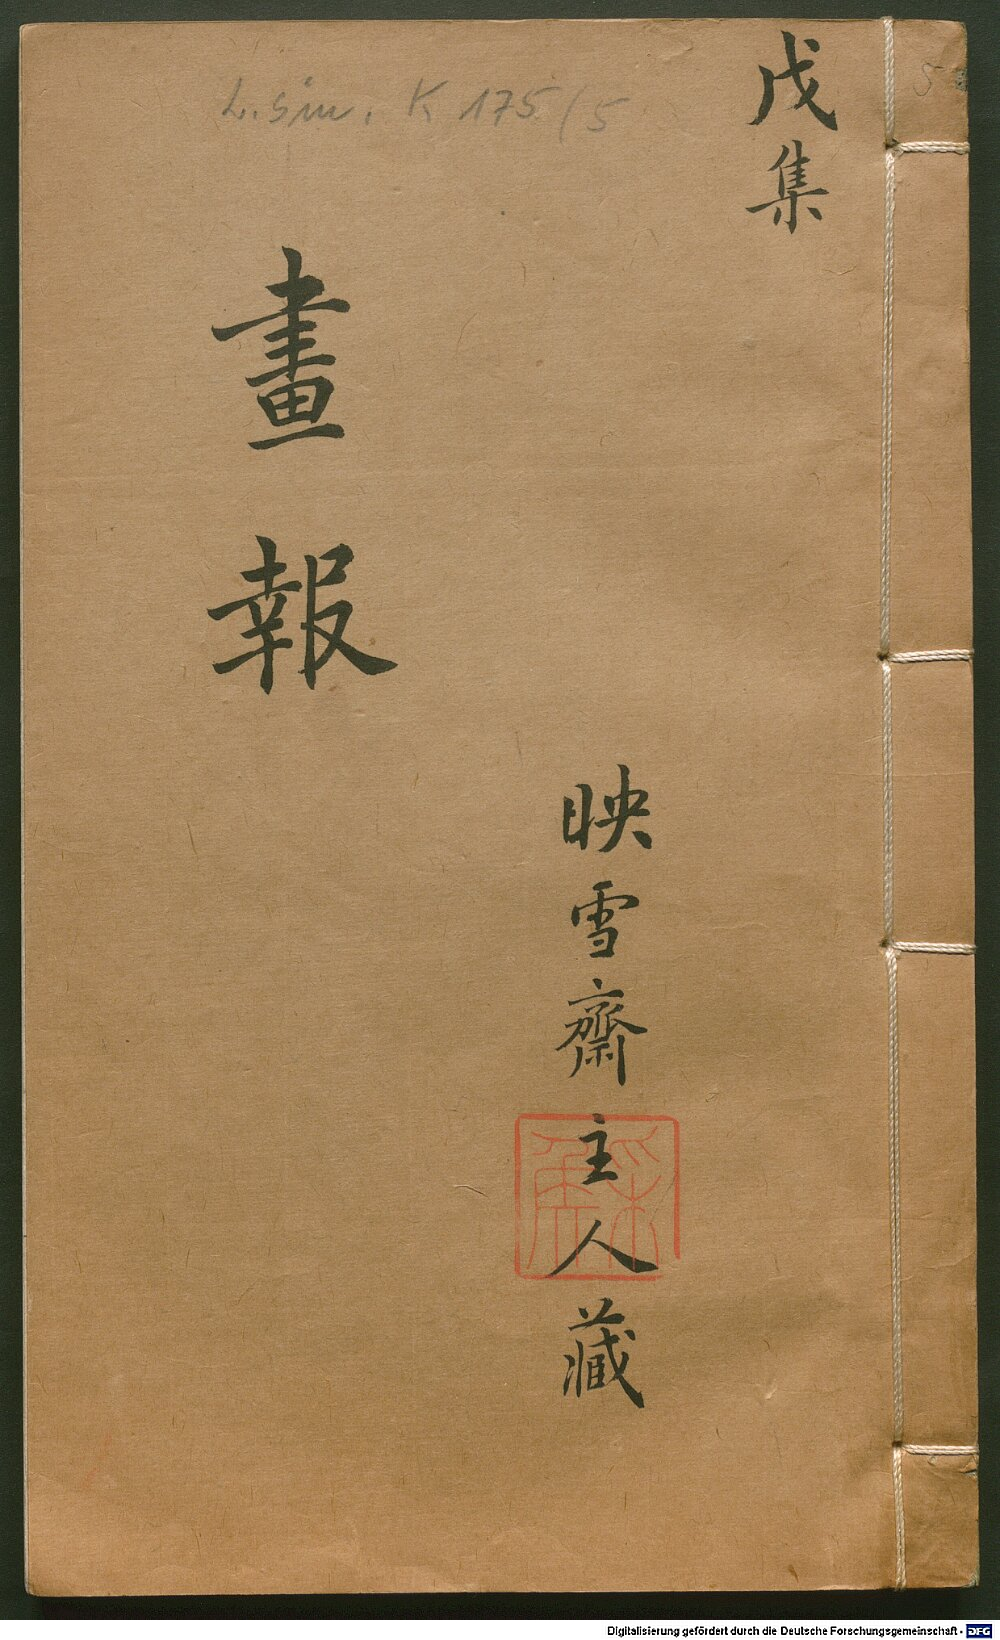 戊集
5
L. sin. K 175/5
畫報
映雪齋主人藏
Digitalisierung gefördert durch die Deutsche Forschungsgemeinschaft - DFG